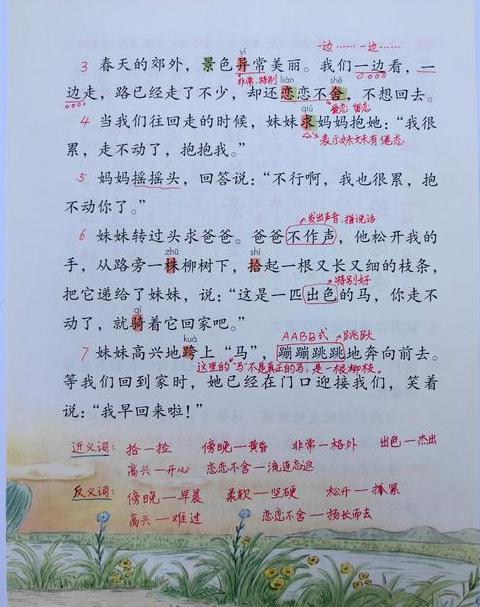 一边……一边……
yì
3 春天的郊外，景色异常美丽。我们一边看，一
非常、特别 liàn shě
边走，路已经走了不少，却还恋恋不舍，不想回去。
qiú 爱恋 留恋
4 当我们往回走的时候，妹妹求妈妈抱她：“我很
表示妹妹有倦态
累，走不动了，抱抱我。”
5 妈妈摇摇头，回答说：“不行啊，我也很累，抱
不动你了。”
发出声音，指说话
6 妹妹转过头求爸爸。爸爸不作声，他松开我的
zhū shí
手，从路旁一株柳树下，拾起一根又长又细的枝条，
特别好
把它递给了妹妹，说：“这是一匹出色的马，你走不
qí
动了，就骑着它回家吧。”
kuà AABB式 跳跃
7 妹妹高兴地跨上“马”，蹦蹦跳跳地奔向前去。
这里的“马”不是真正的马，是一根柳枝。
等我们回到家时，她已经在门口迎接我们，笑着
说：“我早回来啦！”
近义词： 拾—捡 傍晚—黄昏 非常—格外 出色—杰出
高兴—开心 恋恋不舍—流连忘返
反义词： 傍晚—早晨 柔软—坚硬 松开—抓紧
高兴—难过 恋恋不舍—扬长而去